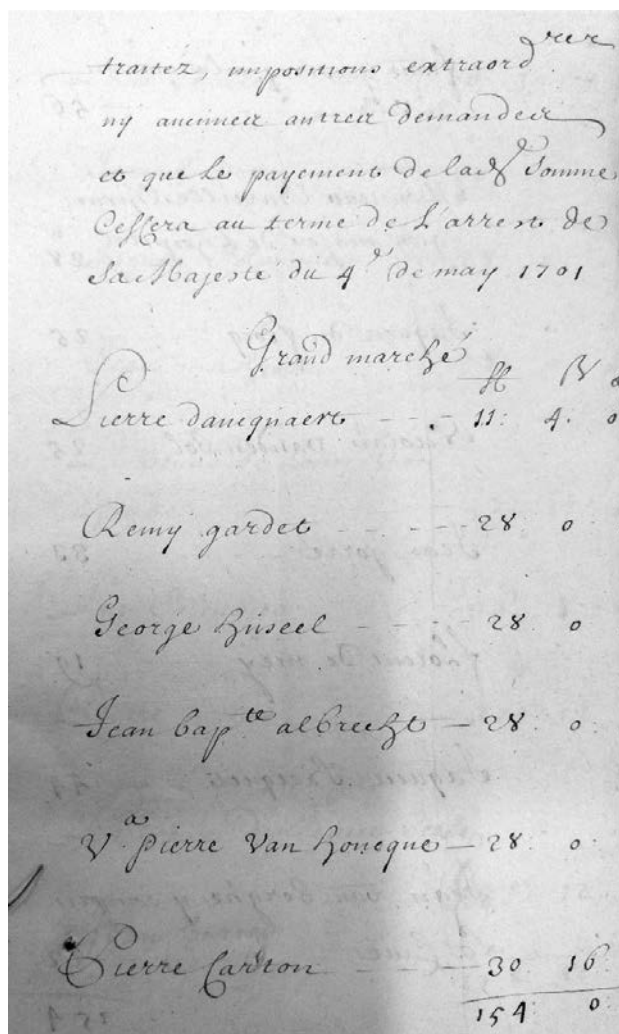 traitez, impositions extraord.res
ny aucunes autres demandes
et que le payement de lad.e somme
Cessera au terme de L'arrest de
Sa Majesté du 4.e de may 1701
Grand marché
fl
Pierre dancquaert - - - 11: 4. 0
Remy gardet - - - - 28 0
George - - - - 28: 0
Jean bap.te albrecht — 28: 0:
V.a pierre Van houcque — 28: 0:
Pierre Carton - - - 30 16
154: 0: